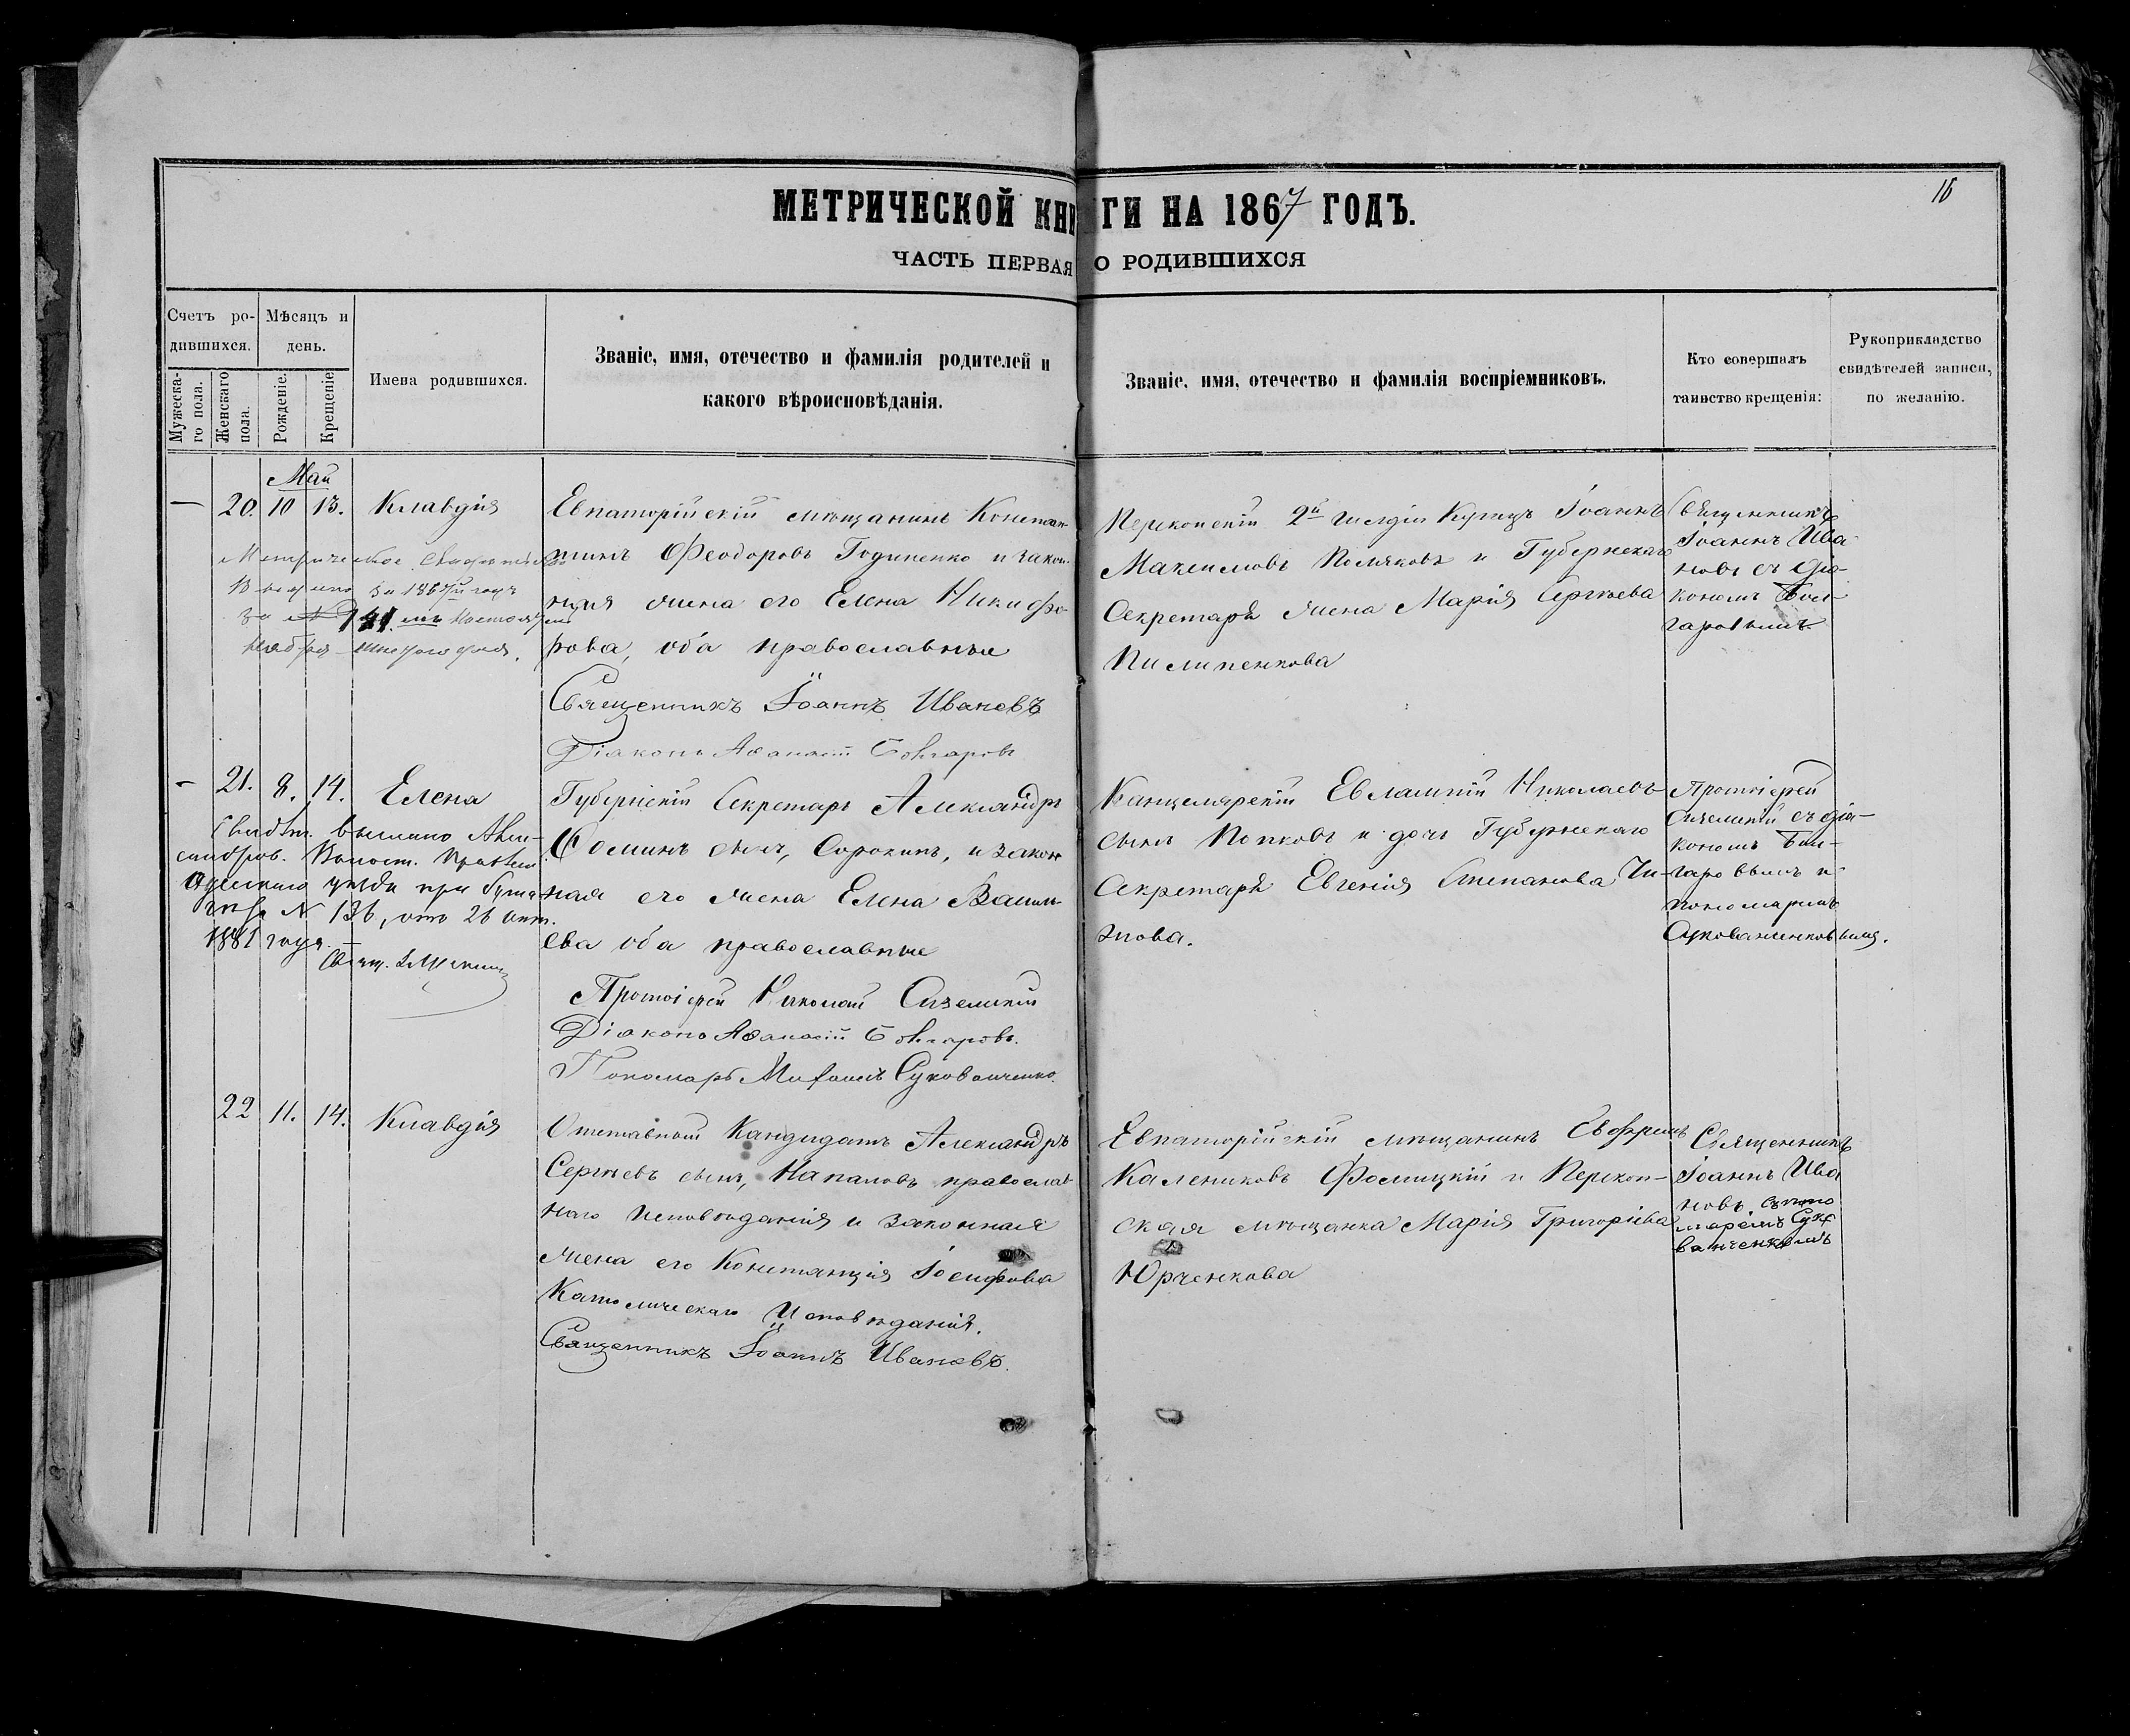 МЕТРИЧЕСКОЙ КНИГИ НА 1867 ГОДЪ.
15
ЧАСТЬ ПЕРВАЯ О РОДИВШИХСЯ
Счетъ ро-
дившихся.
Мужеска-
го пола.
Женскаго
пола.
Мѣсяцъ и
день.
Рожденіе.
Крещеніе
Имена родившихся.
Званіе, имя, отечество и фамилія родителей и
какого вѣроисповѣданія.
Званіе, имя, отечество и фамилія воспріемниковъ.
Кто совершалъ
таинство крещенія:
Рукоприкладство
свидѣтелей записи,
по желанію.
Май
— 20. 10 13. Клавдія
Метрическое
за 1867й годъ
Евпаторійскій мѣщанинъ Констан-
тинъ Феодоровъ Годиненко и закон-
ная жена его Елена Никифо-
рова, оба православные
Священникъ Іоаннъ Ивановъ
Діаконъ Аѳанасій Болгаровъ
Перекопскій 2й гильдіи Купецъ Іоаннъ
Максимовъ Поляковъ и Губернскаго
Секретаря жена Марія Сергѣева
Пилипенкова
Священникъ
Іоаннъ Ива-
новъ съ діа-
кономъ Бол-
гаровымъ
— 21. 8. 14. Елена
Свидѣт. выслано Алек-
сандров. Волост. Правлен.
уѣзда при
№ 136, отъ 26
1881 года.
Свящ.
Губернскій Секретарь Александръ
Фоминъ сынъ, Сорокинъ, и закон
ная его жена Елена Василь-
ева оба православные
Протоіерей Николай
Діаконъ Аѳанасій Болгаровъ.
Пономарь Михаилъ Сукованченко.
Канцелярскій Евлампій Николаевъ
сынъ Попковъ и дочь Губернскаго
Секретаря Евгенія Степанова
Протоіерей
съ діа-
кономъ Бол-
гаровымъ и
пономаремъ
Суковаченковымъ.
22 11. 14. Клавдія
Отставной Кандидатъ Александръ
Сергѣевъ сынъ, православ
наго исповѣданія и законная
жена его Констанція Іосифова
Католическаго Исповѣданія.
Священникъ Іоаннъ Ивановъ.
Евпаторійскій мѣщанинъ
Калениковъ Фомицкій и Перекоп-
ская мѣщанка Марія Григоріева
Юрченкова
Священникъ
Іоаннъ Ива
новъ, съ поно
маремъ Суко
ванченковымъ